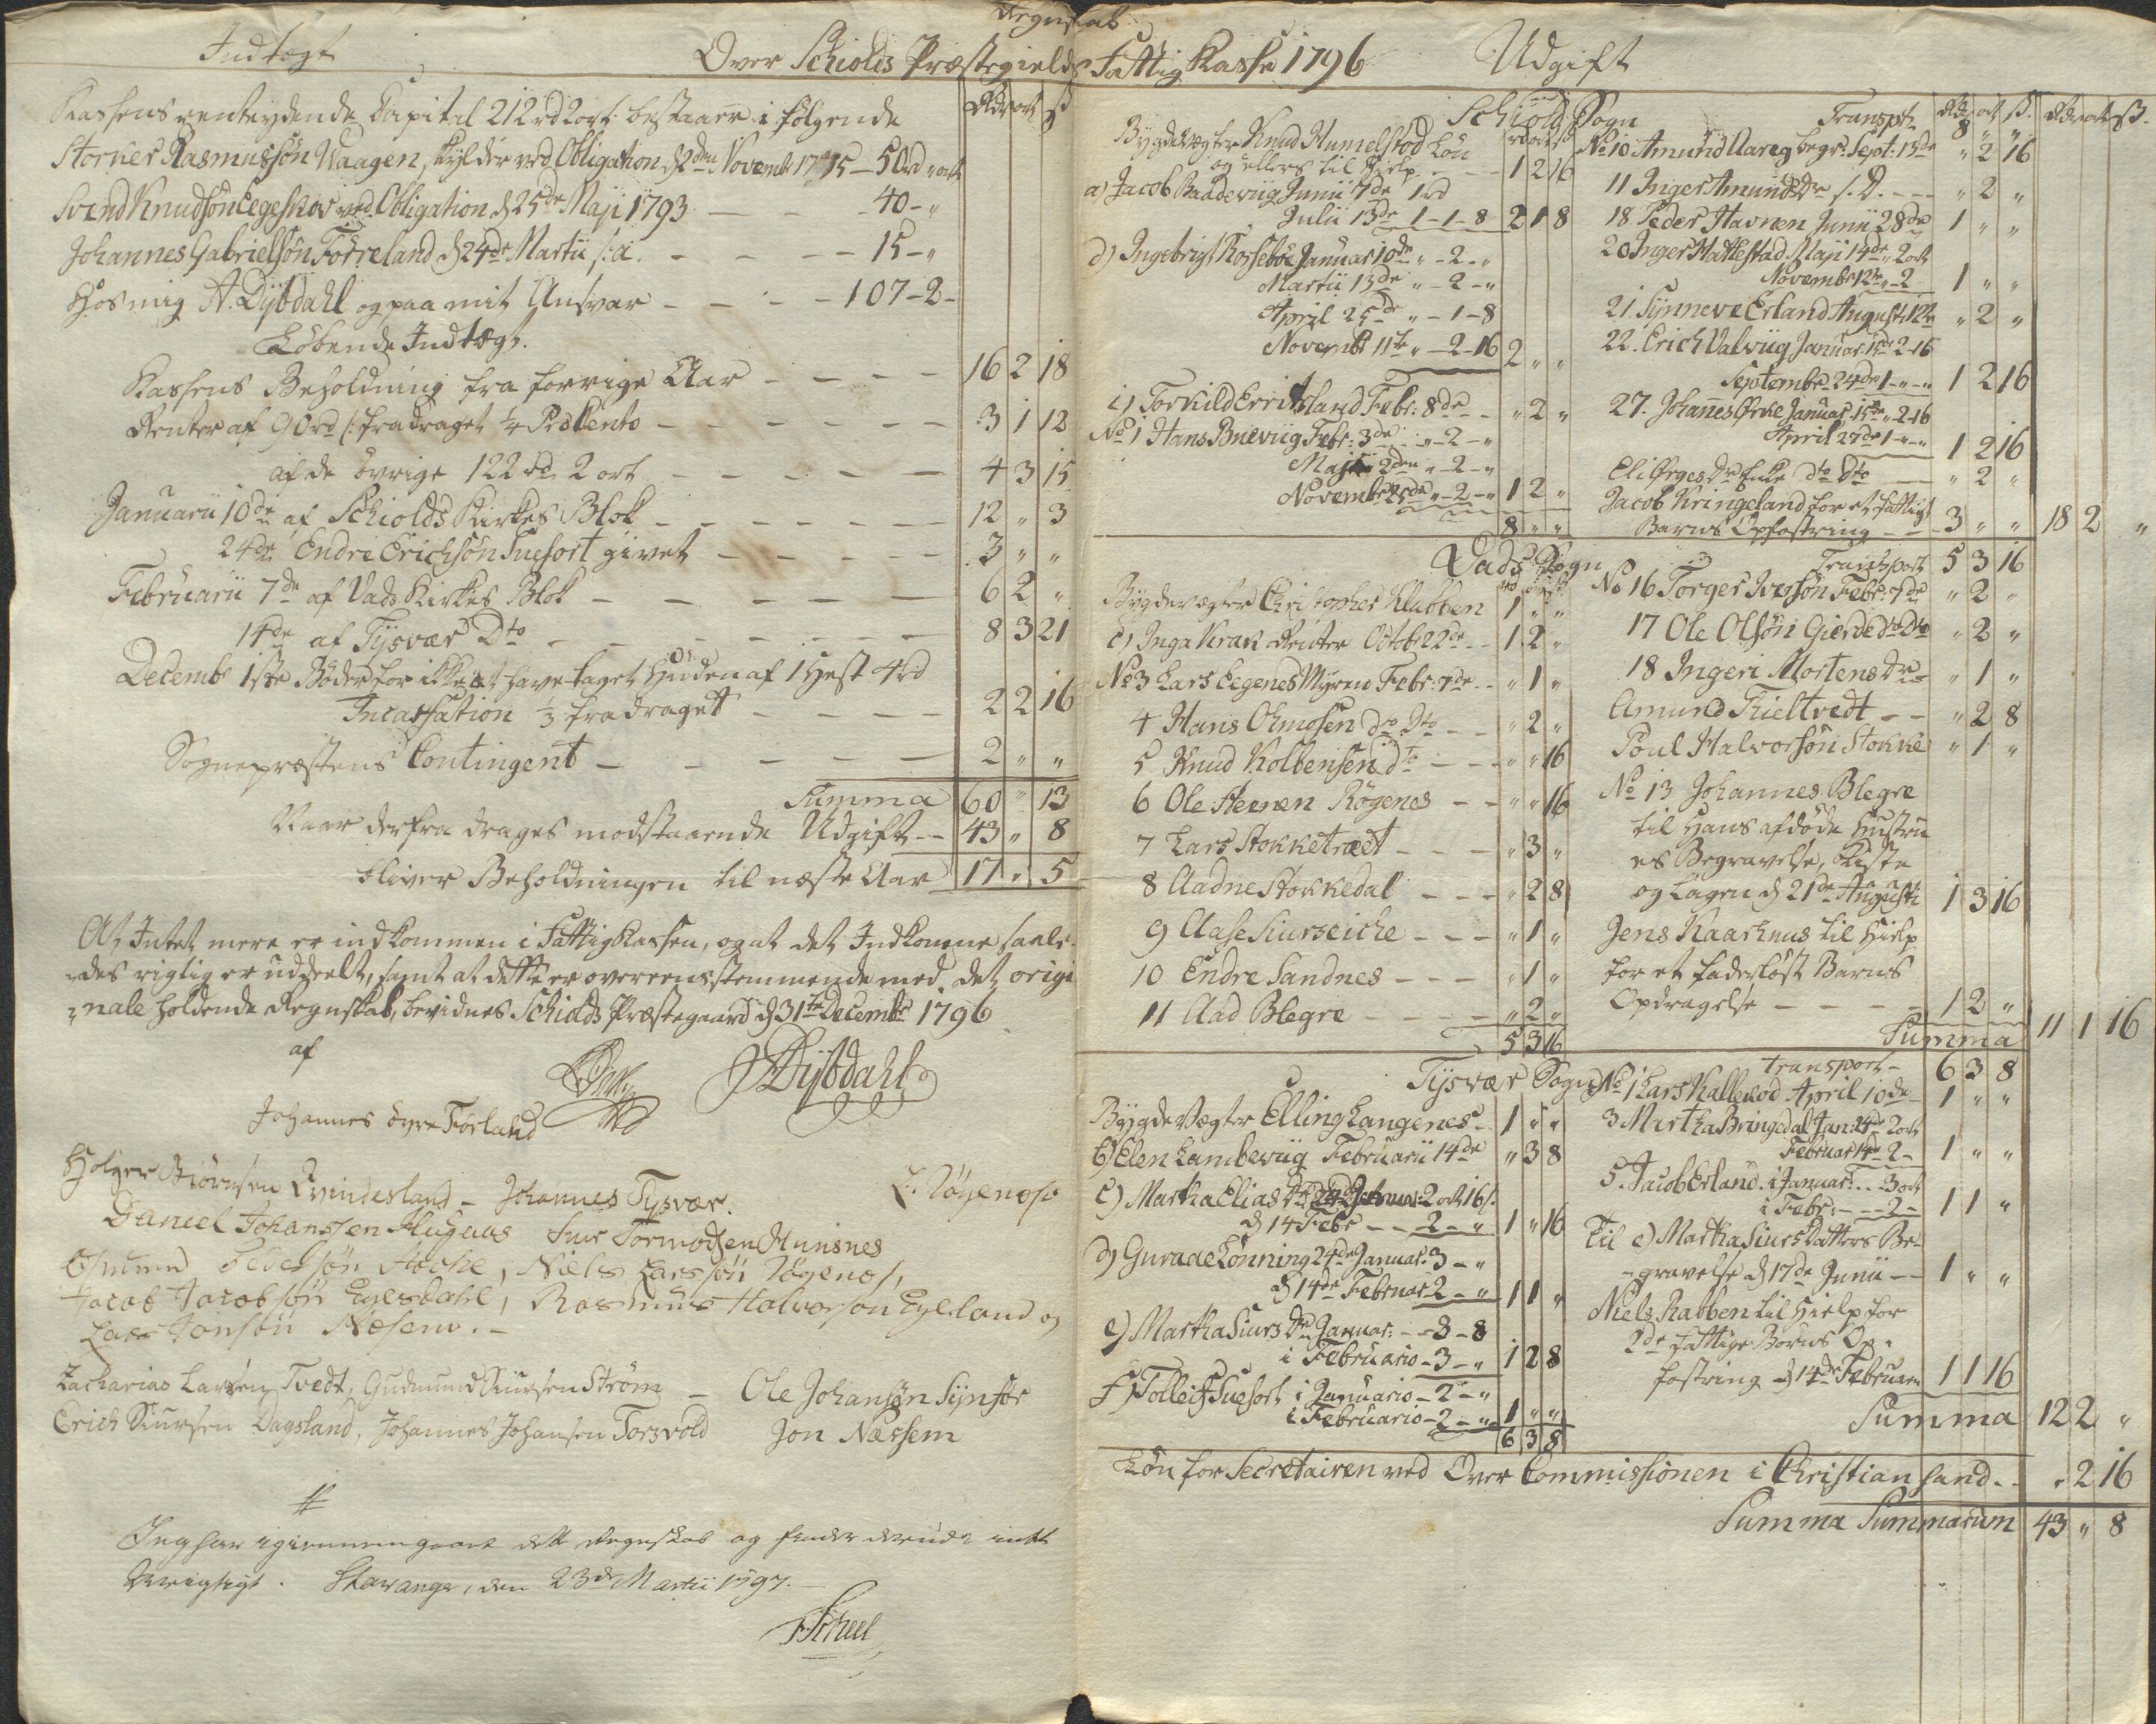 Regnskab
Indtægt
Over Schiolds Præstegields Fattig Kasse 1796
Udgift
Rdr ort ß
Kassens renteydende Capital 212 rd 2 ort bestaaer i følgende
Storker Rasmussøn Waagen, skylder ved Obligation d 2den Novembr 1775 — 50 rd " ort
Svend Knudsøn Legeskov ved Obligation d 25de Maji 1793 — — 40 - "
Johannes Gabrielsøn Førreland d 24de Martii s: a. — — — 15 - "
Hos mig A. Dÿbdahl og paa mit Ansvar — — — 107 - 2 -
Løbende Indtægt.
Kassens Beholdning fra forrige Aar — — — — 16 2 18
Renter af 90 rd /: fradraget ¼ Pro Cento — — — — — 3 1 12
af de øvrige 122 rd 2 ort — — — — — 4 3 15
Januarii 10de af Schiolds Kirkes Blok — — — — — 12 " 3
24de Endre Erichsøn Tuefort givet — — — — 3 " "
Februarii 7de af Vads Kirkes Blok — — — — — 6 2 "
14de af Tÿsvær Dto — — — — — 8 3 21
Decembr 1ste Bøder for ikke at have taget Huden af 1 Hest 4 rd
Incassation ⅓ fradraget — — — — 2 2 16
Sognepræstens Contingent — — — — — 2 " "
Summa 60 " 13
Naar derfra drages modstaaende Udgift — 43 " 8
bliver Beholdningen til næste Aar 17 " 5
At Intet mere er indkommen i Fattig Kassen, og at det Indkomne saale-
des rigtig er uddeelt, samt at dette er overeensstemmende med det origi-
nale holdende Regnskab, bevidnes Schiolds Præstegaard d 31te Decembr 1796
af
A Dÿbdahl
Johannes øvre Førland
Holger Biørnsen Qvindesland - Johannes Tysvær. L. Røgenes
Daniel Johanssen Siur Tormodsen Hunsnes
Pedersøn Niels Larssøn Røgenes,
Jacob Jacobsøn Egesdahl, Rasmus Halvorsøn Egeland og
Lars Jonsøn Nesem. -
Zacharias Larsen Tvedt, Gudmund Siursen Strøm - Ole Johansøn Synfør
Erich Siursen Dagsland, Johannes Johansen Torsvold Jon Næssem
Jeg har igiennemgaaet dette Regnskab og finder derudi intet
Urigtigt. Stavanger, den 23de Martii 1797.
F Scheel
Schiold Sogn
rd ort ß
Bygdevægter Knud Humelstod Løn
og ellers til Hielp - - - 1 2 16
a) Jacob Raadeviig Junii 7de 1 rd
Julii 13de 1 - 1 - 8 2 1 8
d) Ingebrigt Rossebøe Januar 10de " - 2 - "
Martii 13de " - 2 - "
April 25de " - 1 - 8
Novembr 11te " - 2 - 16 2 " "
i) Torkild Erritsland Febr: 8de - " 2 "
No 1 Hans Bueviig Febr: 3de " - 2 - "
Maji 2den " - 2 - "
Novembr 25de " - 2 - " 1 2 "
8 " "
Transpt Rdr ort ß. Rdr ort ß.
8 " "
No 10 Amund Aareg begr: Sept: 13de " 2 16
11 Inger Amunds Dr s. D. - - " 2 "
18 Peder Havnen Junii 28de 1 " "
20 Inger Hattlestad Maji 14de " 2 ort
Novembr 12te " - 2 1 " "
21. Synneve Erland August: 12te " 2 "
22. Erich Valviig Januar: 15de 2 - 16
Septembr 24de 1 - " - " 1 2 16
27. Johannes Ørke Januar 15de " 2 - 16
April 27de 1 - " - " 1 2 16
Eli Dto Dto " 2 "
Jacob Kringeland for et fattigt
Barns Opfostring - - 3 " " 18 2 "
Vads Sogn
rd ort ß
Bygdevægter Christopher Klubben 1 " "
c) Inga Krak Renter Octobr 22de - 1 2 "
No 3 Lars Legenes Myren Febr: 7de - " 1 "
4 Hans Ohmosen do Dto - " 2 "
5 Knud Kolbensen dto - - - " " 16
6 Ole Steenen Røgenes - - " " 16
7 Lars Stokketræet - - - " 3 "
8 Aadne Stokkedal - - - " 2 8
9 Aase Siurseiche - - - " 1 "
10 Endre Sandnes - - - " 1 "
11 Aad Blegre - - - - " 2 "
5 3 16
Transport 5 3 16
No 16 Torger Iversøn Febr: 7de " 2 "
17 Ole Olsøn Gierde do Dto " 2 "
18 Ingeri Mortens Dr " 1 "
Amund Kieltvedt - - " 2 8
Poul Halvorsøn Stokke " 1 "
No 13 Johannes Blegre
til Hans afdøde Hustru
es Begravelse, Kiste
og Lagen d 21de Augusti 1 3 16
Jens Kaarhuus til Hielp
for et faderløst Barns
Opdragelse - - - - 1 2 "
Summa 11 1 16
Tÿsvær Sogn
Bygdevægter Elling Langenes - 1 " "
b) Elen Lambeviig Februarii 14de " 3 8
c) Martha Elias Dr 24de Januar: 2 ort 16 ß.
d 14 Febr - - 2 - " 1 " 16
d) Guraae Lønning 24de Januar: 3 - "
d 14de Februar 2 - " 1 1 "
e) Martha Siurs Dr Januar: - - 3 - 8
i Februario - 3 - " 1 2 8
f) Tolleif Tuefort i Januario - 2 - "
i Februario - 2 - " 1 " "
6 3 8
transport - 6 3 8
No 1 Lars Kallekod April 10de - 1 " "
3 Martha Bringedal Jan: 24de 2 ort
Februar 14de 2 - 1 " "
5. Jacob Erland. i Januar: - - 3 ort
i Febr: - - - 2 - 1 1 "
Til e) Martha Siursdatters Be-
gravelse d 17de Junii - - 1 " "
Niels Rabben til Hielp for
2de fattige Børns Op-
fostring d 14de Februarii 1 1 16
Summa 12 2 "
Løn for Secretairen ved Over Commissionen i Christiansand - - " 2 16
Summa Summarum 43 " 8